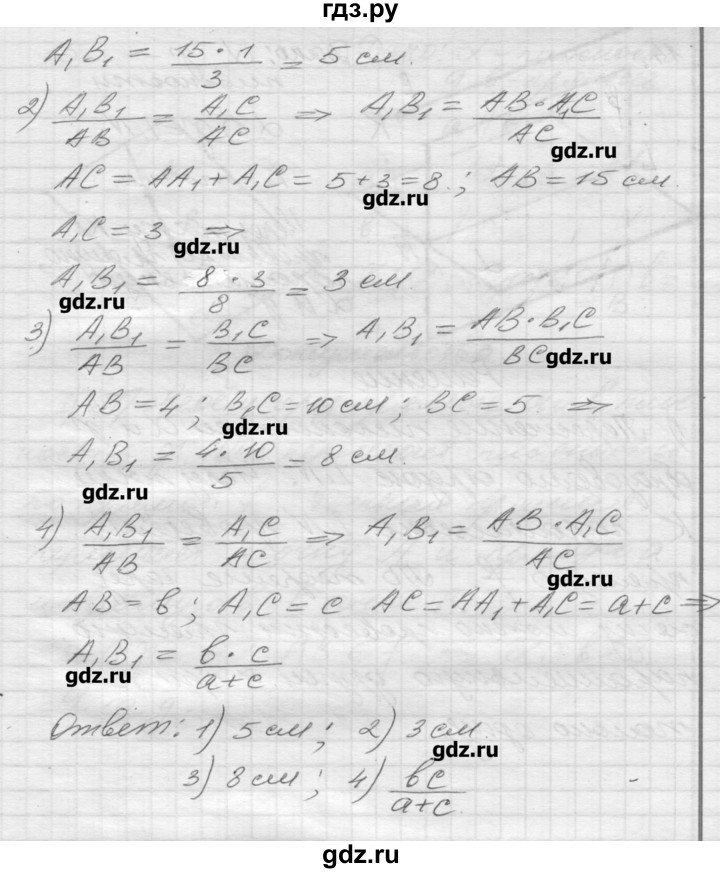 гдз.ру
A₁B₁ = 15·1/3 = 5 см.
2) A₁B₁/AB = A₁C/AC ⇒ A₁B₁ = AB·A₁C/AC
gdz.ru
AC = AA₁ + A₁C = 5+3=8.; AB = 15 см.
gdz.ru
A₁C = 3 ⇒
gdz.ru
A₁B₁ = 8·3/8 = 3 см.
gdz.ru
3) A₁B₁/AB = B₁C/BC ⇒ A₁B₁ = AB·B₁C/BC
gdz.ru
AB = 4; B₁C = 10 см; BC = 5 ⇒
gdz.ru
A₁B₁ = 4·10/5 = 8 см.
gdz.ru
4) A₁B₁/AB = A₁C/AC ⇒ A₁B₁ = AB·A₁C/AC
gdz.ru
AB = в; A₁C = c AC = AA₁ + A₁C = a+c ⇒
A₁B₁ = в·c/a+c
gdz.ru
Ответ: 1) 5 см; 2) 3 см.
gdz.ru
3) 8 см; 4) вc/a+c.
gdz.ru